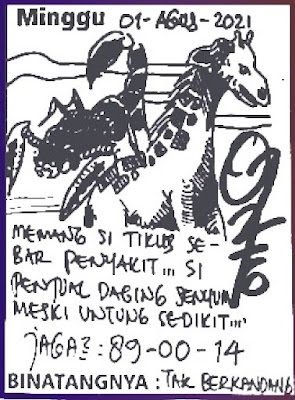 Minggu 01-AGUS-2021
MEMANG SI TIKUS SE-
BAR PENYAKIT,,, SI
PENJUAL DAGING SENYUM
MESKI UNTUNG SEDIKIT,,,
JAGA2 : 89-00-14
BINATANGNYA : TAK BERKANDANG